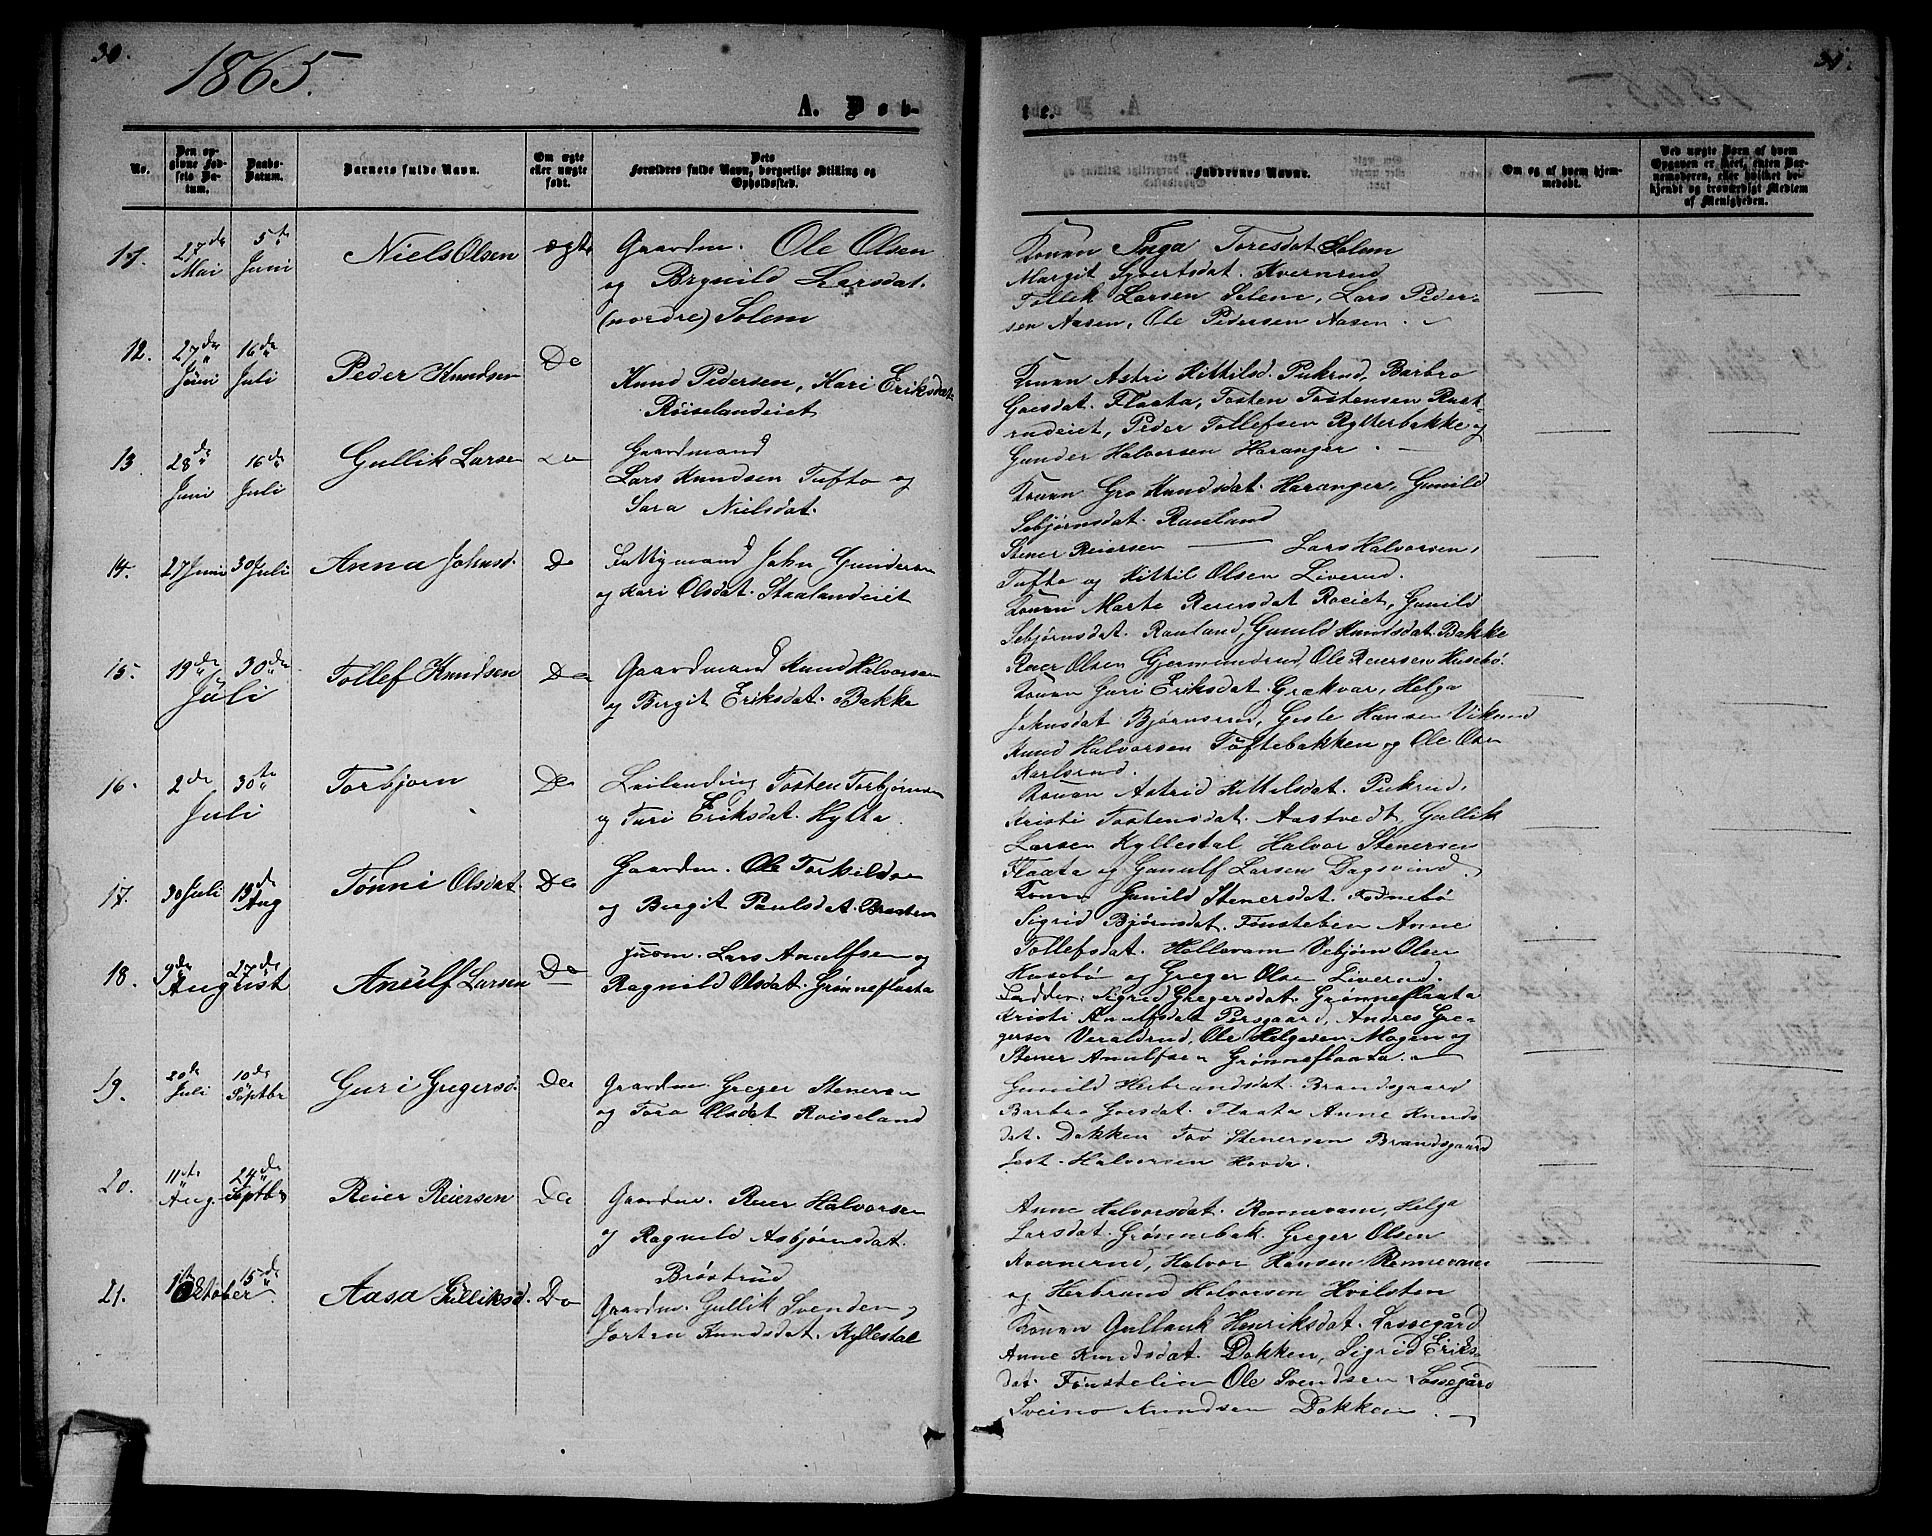 30.
1865.
A. Døb-
No.
Den op-
givne Fød-
sels Da-
tum.
Daabs-
Datum.
Barnets fulde Navn.
Om ægte
eller uægte
født.
Dets
Forældres fulde Navn, borgerlige Stilling og
Opholdssted.
11.
27de Mai
5te Juni
Niels Olsen
ægte
Gaardm. Ole Olsen
og Brynild Larsdat.
(nordre) Solem
12.
27de Juni
16de Juli
Peder Knudsen
Do
Knud Pedersen, Kari Eriksdat.
Röiselandeiet
13
28de Juni
16de Juli
Gullik Larsen
Do
Gaardmand
Lars Knudsen Tufto og
Sara Nielsdat.
14.
27 Juni
30 Juli
Anna Johnsd.
Do
John Gunders
og Kari Olsdat. Staalandeiet
15.
19de
30de
Juli
Tollef Knudsen
Do
Gaardmand Knud Halvorsen
og Birgit Eriksdat. Bakke
16.
2de
30te
Juli
Torbjørn
Do
Leilending Tosten Torbjørns
og Turi Eriksdat. Hytta.
17.
30 Juli
13de Aug
Tönni Olsdat.
Do
Gaardm. Ole Torkilds
og Birgit Paulsdat. Braaten
18.
9de
27de
August
Anülf Larsen
Do
Lars Anulfsen og
Ragnild Olsdat. Grønneflaata
19.
20de Juli
10de Septbr
Guri Gregersd.
Do
Gaardm. Greger Stenersen
og Tora Olsdat Roiseland
20.
11te Aug.
24de Septbr
Reier Reiersen
Do
Gaardm. Reier Halvorsen
og Ragnild Asbjørnsdat.
Bröstrud
21.
1ste
15de
Oktober
Aasa Gulliksd.
Do
Gaardm. Gullik Svendsen og
Jorten Knudsdat. Kyllestal
31.
te.
Faddernes Navne.
Om og af hvem hjem-
medøbt.
Ved uægte Børn af hvem
Opgaven er skeet, enten Bar-
nemoderen, eller hvilket be-
kjendt og troværdigt Medlem
af Menigheden.
Konen Inga Toresdat Solem
Margit Syvertsdat. Kvernrud
Tollik Larsen Solem, Lars Peder-
sen Aasen, Ole Pedersen Aasen.
Konen Astri Kittilsd. Pukrud, Barbro
Goesdat. Flaata, Tosten Tostensen Rust-
rudeiet, Peder Tollefsen Rytterbakke og
Gunder Halvorsen Haranger.
Konen Gro Knudsdat. Haranger, Gunild
Sebjørnsdat. Rauland
Stener Reiersen Lars Halvorsen,
Tufto og Kittil Olsen Liverud.
Konen Marte Reiersdat Roeiet, Gunild
Sebjørnsdat. Rauland, Gunild Knudsdat. Bakke
Reier Olsen Gjermundrud, Ole Reiersen Husebö.
Konen Guri Eriksdat. Grækvar, Helga
Johnsdat Bjørnsrud, Gisle Hansen Vikrud
Knud Halvorsen Toftebakken og Ole Olsen
Karlsrud.
Konen Astrid Kittilsdat. Pukrud,
Kristi Tostensdat. Aastvedt, Gullik
Larsen Kyllestal Halvor Stenersen
Flaata og Gunulf Larsen Dagsvind.
Konen Gunild Stenersdat. Fodnebö
Sigrid Björnsdat. Fönsteben Anne
Tollefsdat. Hollevam Vebjörn Olsen
Husebö og Greger Olsen Liverud.
Fadden: Sigrid Gregersdat. Grønneflaata
Kristi Anulfsdat Persgaard, Andres Gre-
gersen Veraldrud, Ole Helgesen Mogen og
Stener Anulfsen Grønneflaata.
Gunild Herbrandsdat. Brandsgaard
Barbro Goesdat. Flaata Anne Knuds
dat. Dokken Tov Stenersen Brandsgaard
Halvorsen Hovda.
Anne Halvorsdat. Rennevam, Helga
Larsdat. Grønnebak. Greger Olsen
Kvernerud, Halvor Hansen Rennevam
og Herbrand Halvorsen Hvilsten
Konen Gullauk Henriksdat. Lossegård
Anne Knudsdat. Dokken, Sigrid Eriks-
dat. Fönstelien Ole Svendsen Lossegård
Sveino Knudsen Dokken.